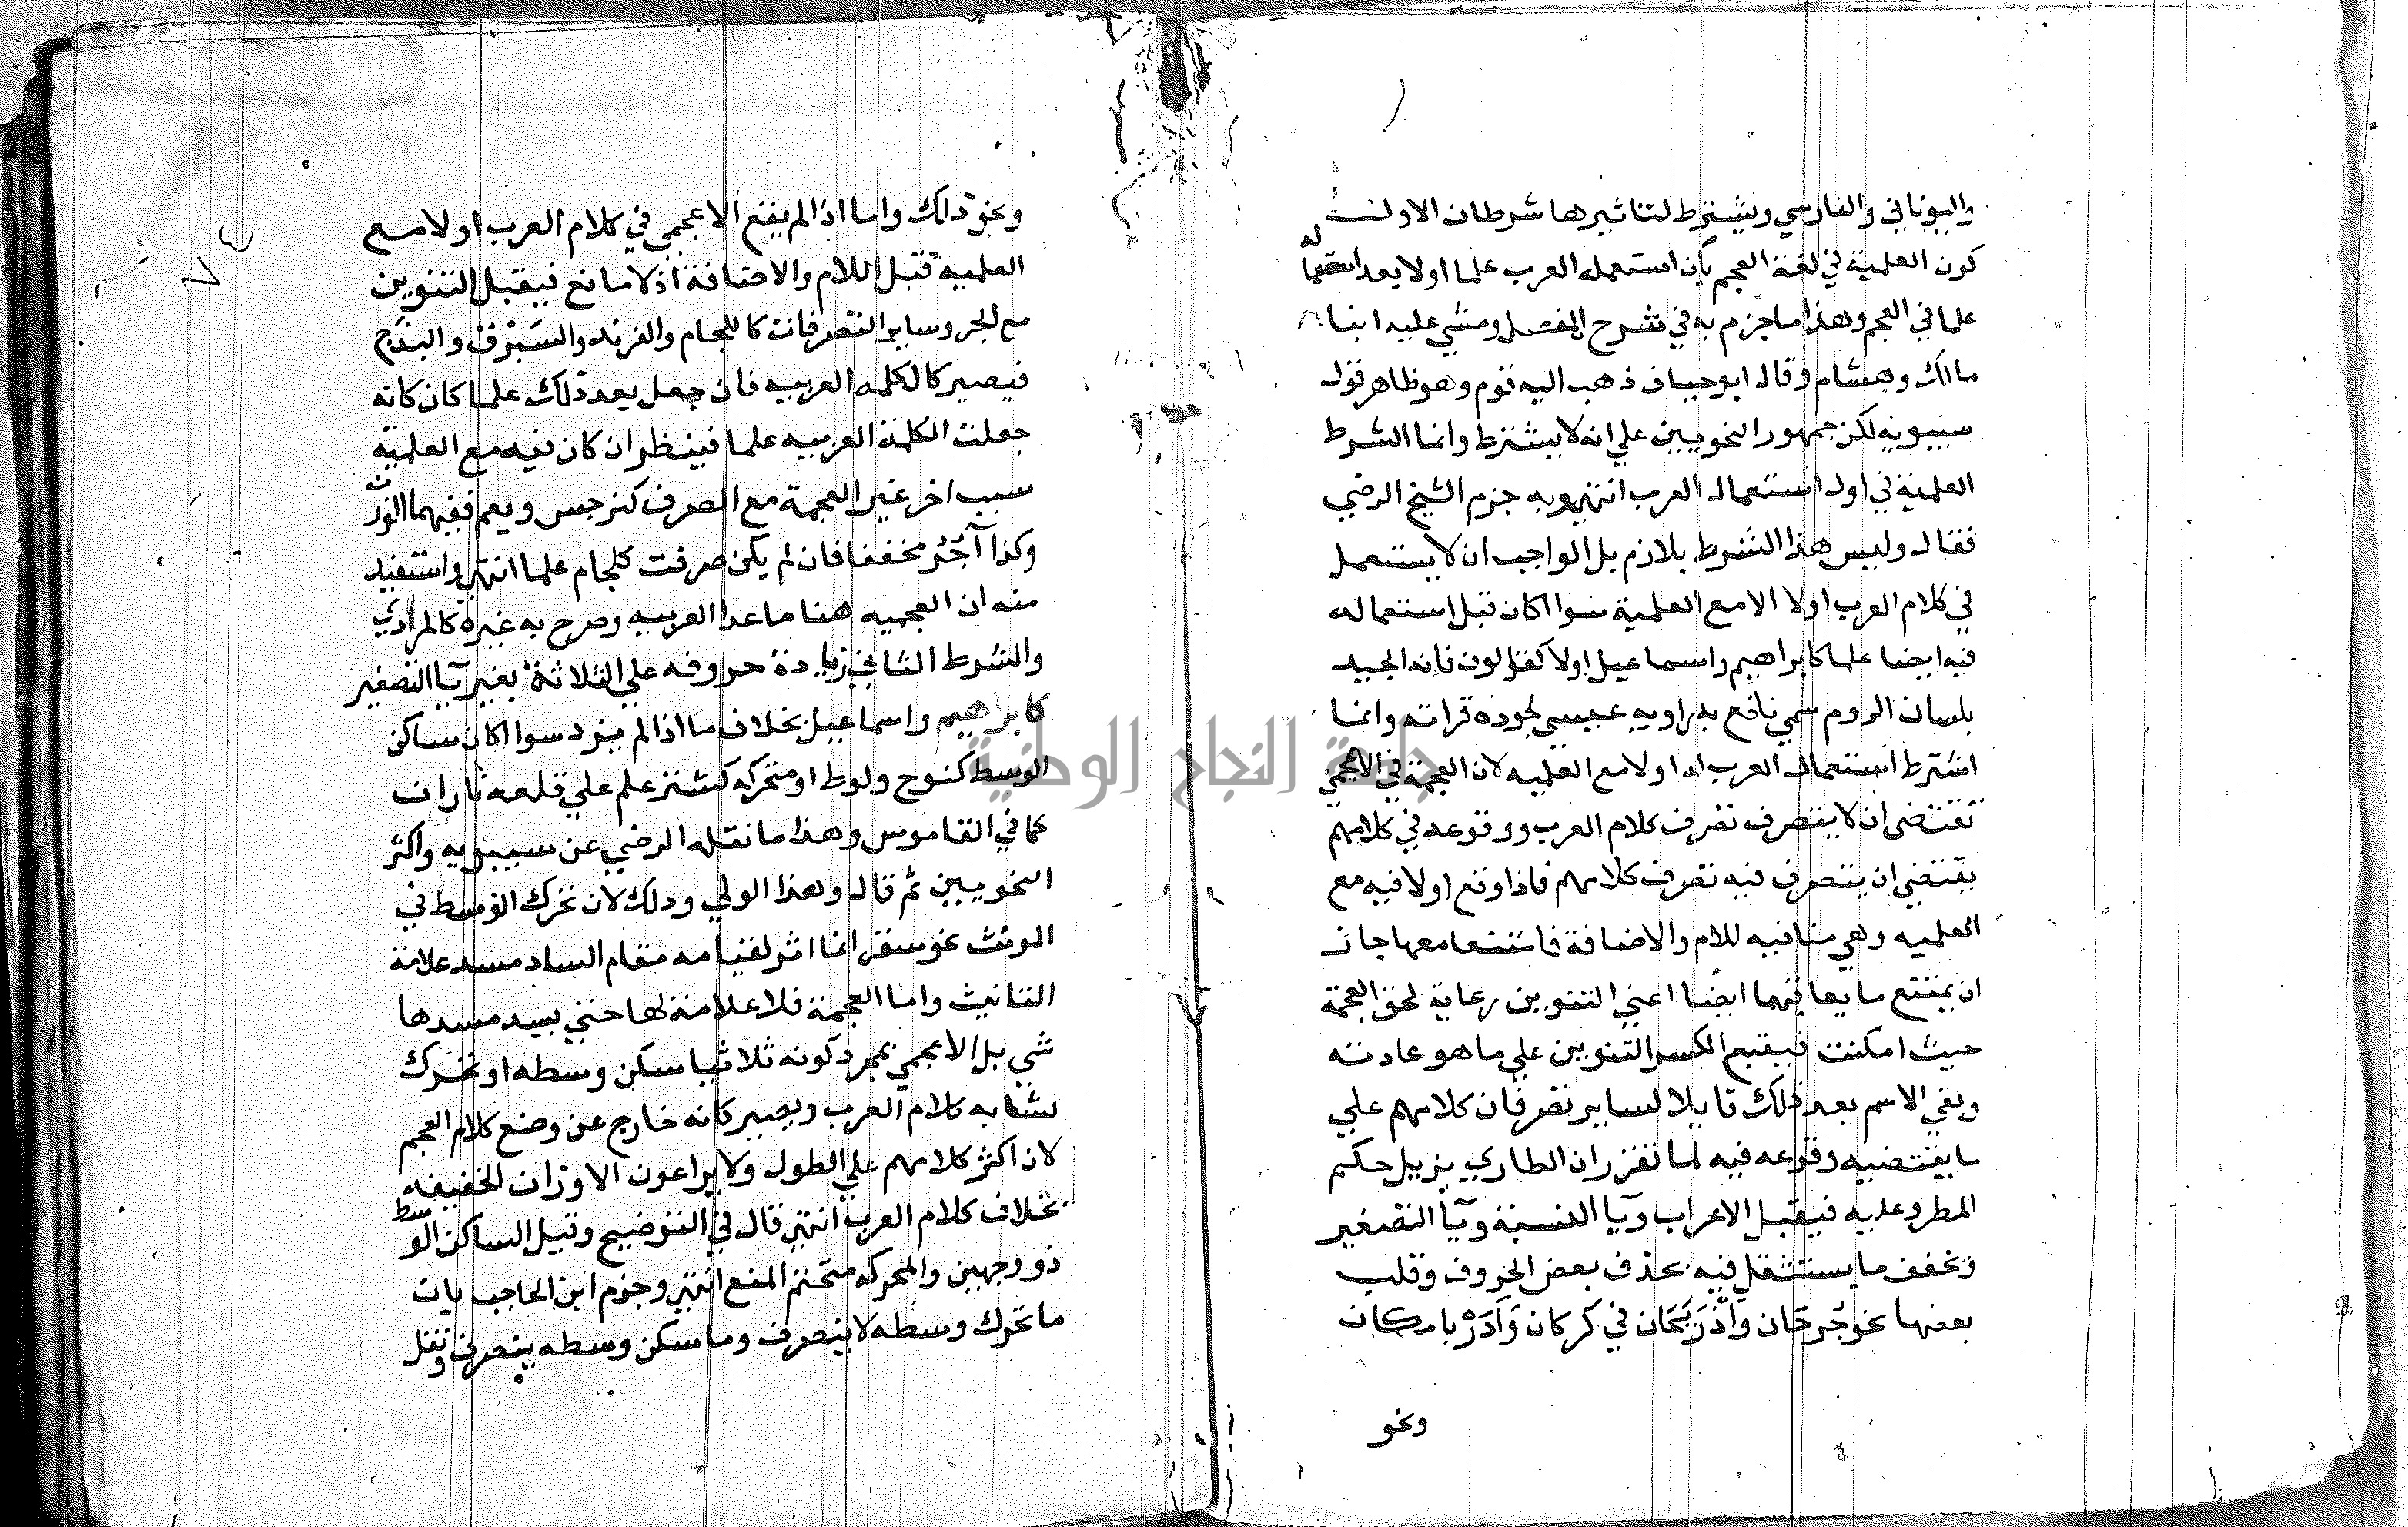 واليوناني والفارسي ويشترط لتاثيرها شرطان الاول
كون العلمية في لغة العجم بان استعمله العرب علما اولا بعد استعماله
علما في العجم وهذا ما جزم به في شرح المفصل ومشي عليه ابنا
مالك وهشام وقال ابو حيان ذهب اليه قوم وهو ظاهر قول
سيبويه لكن جمهور النحويين علي انه لا يشترط وانما الشرط
العلمية في اول استعمال العرب انتهي وبه جزم الشيخ الرضي
فقال وليس هذا الشرط بلازم بل الواجب ان لا يستعمل
في كلام العرب اولا الا مع العلمية سوا اكان قبل استعماله
فيه ايضا علما كابراهيم واسماعيل اولا كقالون فانه الجيد
بلسان الروم سمي نافع به راويه عيسي لجوده قراته وانما
اشترط استعمال العرب له اولا مع العلميه لان العجمة في الاعجمي
تقتضي ان لا يتصرف تصرف كلام العرب ووقوعه في كلامهم
يقتضي ان يتصرف فيه تصرف كلامهم فاذا وقع اولا فيه مع
العلميه وهي منافيه للام والاضافة فامتنعا معها جاز
ان يمتنع ما يعاقبهما ايضا اعني التنوين رعاية لحق العجمة
حيث امكنت فيتبع الكسر التنوين علي ما هو عادته
وبقي الاسم بعد ذلك قابلا لساير تصرفات كلامهم علي
ما يقتضيه وقوعه فيه لما تقرر ان الطاري يزيل حكم
المطرو عليه فيقبل الاعراب ويآ النسبة ويآ التصغير
وتخفف ما يستثقل فيه بحذف بعض الحروف وقلب
بعضها نحو جرجان وآذربيجان في كركان وآذربايكان
ونحو
ونحو ذلك واما اذا لم يقع الاعجمي في كلام العرب اولا مع
العلميه قبل اللام والاضافة اذ لا مانع فيقبل التنوين
مع الجر وساير التصرفات كاللجام والفرند والسبرق والبذج
فيصير كالكلمه العربيه فان جعل بعد ذلك علما كان كانه
جعلت الكلمة العربيه علما فينظر ان كان فيه مع العلمية
سبب اخر غير العجمة مع الصرف كنرجس وبقم ففيهما الوزن
وكذا آجر مخففا فان لم يكن صرفت كلجام علما انتهي واستفيد
منه ان العجميه هنا ما عدا العربيه وصرح به غيره كالمرادي
والشرط الثاني زيادة حروفه علي الثلاثة بغير يآ التصغير
كابراهيم واسماعيل بخلاف ما اذا لم يزد سوا اكان ساكن
الوسط كنوح ولوط او متحركه كشتر علم علي قلعه باران
كما في القاموس وهذا ما نقله الرضي عن سيبويه واكثر
النحويين ثم قال وهذا الولي وذلك لان تحرك الوسط في
المونث نحو سقر انما اثر لقيامه مقام الساد مسد علامة
التانيث واما العجمة فلا علامة لها حتي يسد مسدها
شي بل الاعجمي بمجرد كونه ثلاثيا سكن وسطه او تحرك
يشابه كلام العرب ويصير كانه خارج عن وضع كلام العجم
لان اكثر كلامهم علي الطول ولا يراعون الاوزان الخفيفه
بخلاف كلام العرب انتهي قال في التوضيح وقيل الساكن الوسط
ذو وجهين والمحركه متحتم المنع انتهي وجزم ابن الحاجب بان
ما تحرك وسطه لا ينصرف وما سكن وسطه ينصرف ونقل
جامعة النجاح الوطنية